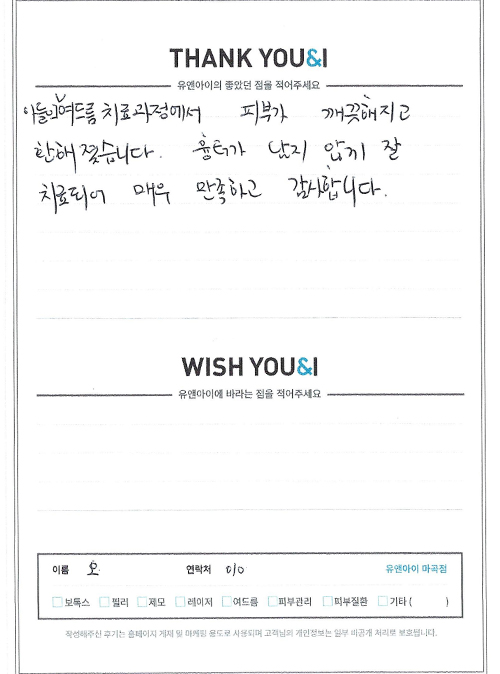 THANK YOU&I
유앤아이의 좋았던 점을 적어주세요
아들의 여드름 치료과정에서 피부가 깨끗해지고
환해졌습니다. 흉터가 남지 않게 잘
치료되어 매우 만족하고 감사합니다.
WISH YOU&I
유앤아이에 바라는 점을 적어주세요
이름 오 연락처 010 유앤아이 마곡점
보톡스 필러 제모 레이저 여드름 피부관리 피부질환 기타 ( )
작성해주신 후기는 홈페이지 게재 및 마케팅 용도로 사용되며 고객님의 개인정보는 일부 비공개 처리로 보호됩니다.